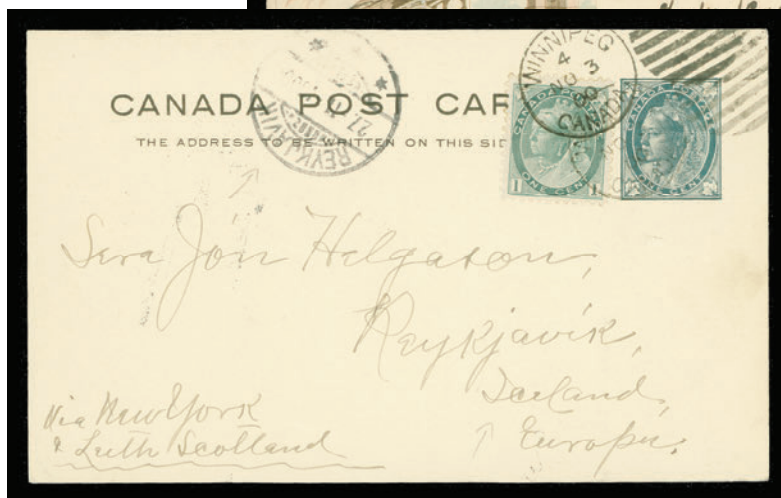 CANADA POST CAR
THE ADDRESS TO BE WRITTEN ON THIS SID
WINNIPEG
4
NO 3
00
CANADA
REYKJAVIK
27.
CANADA POSTAGE
1 ONE CENT 1
CANADA POSTAGE
ONE CENT
Sera Jón Helgason,
Reykjavík,
Iceland,
Europe.
Via New York
& Leith Scotland